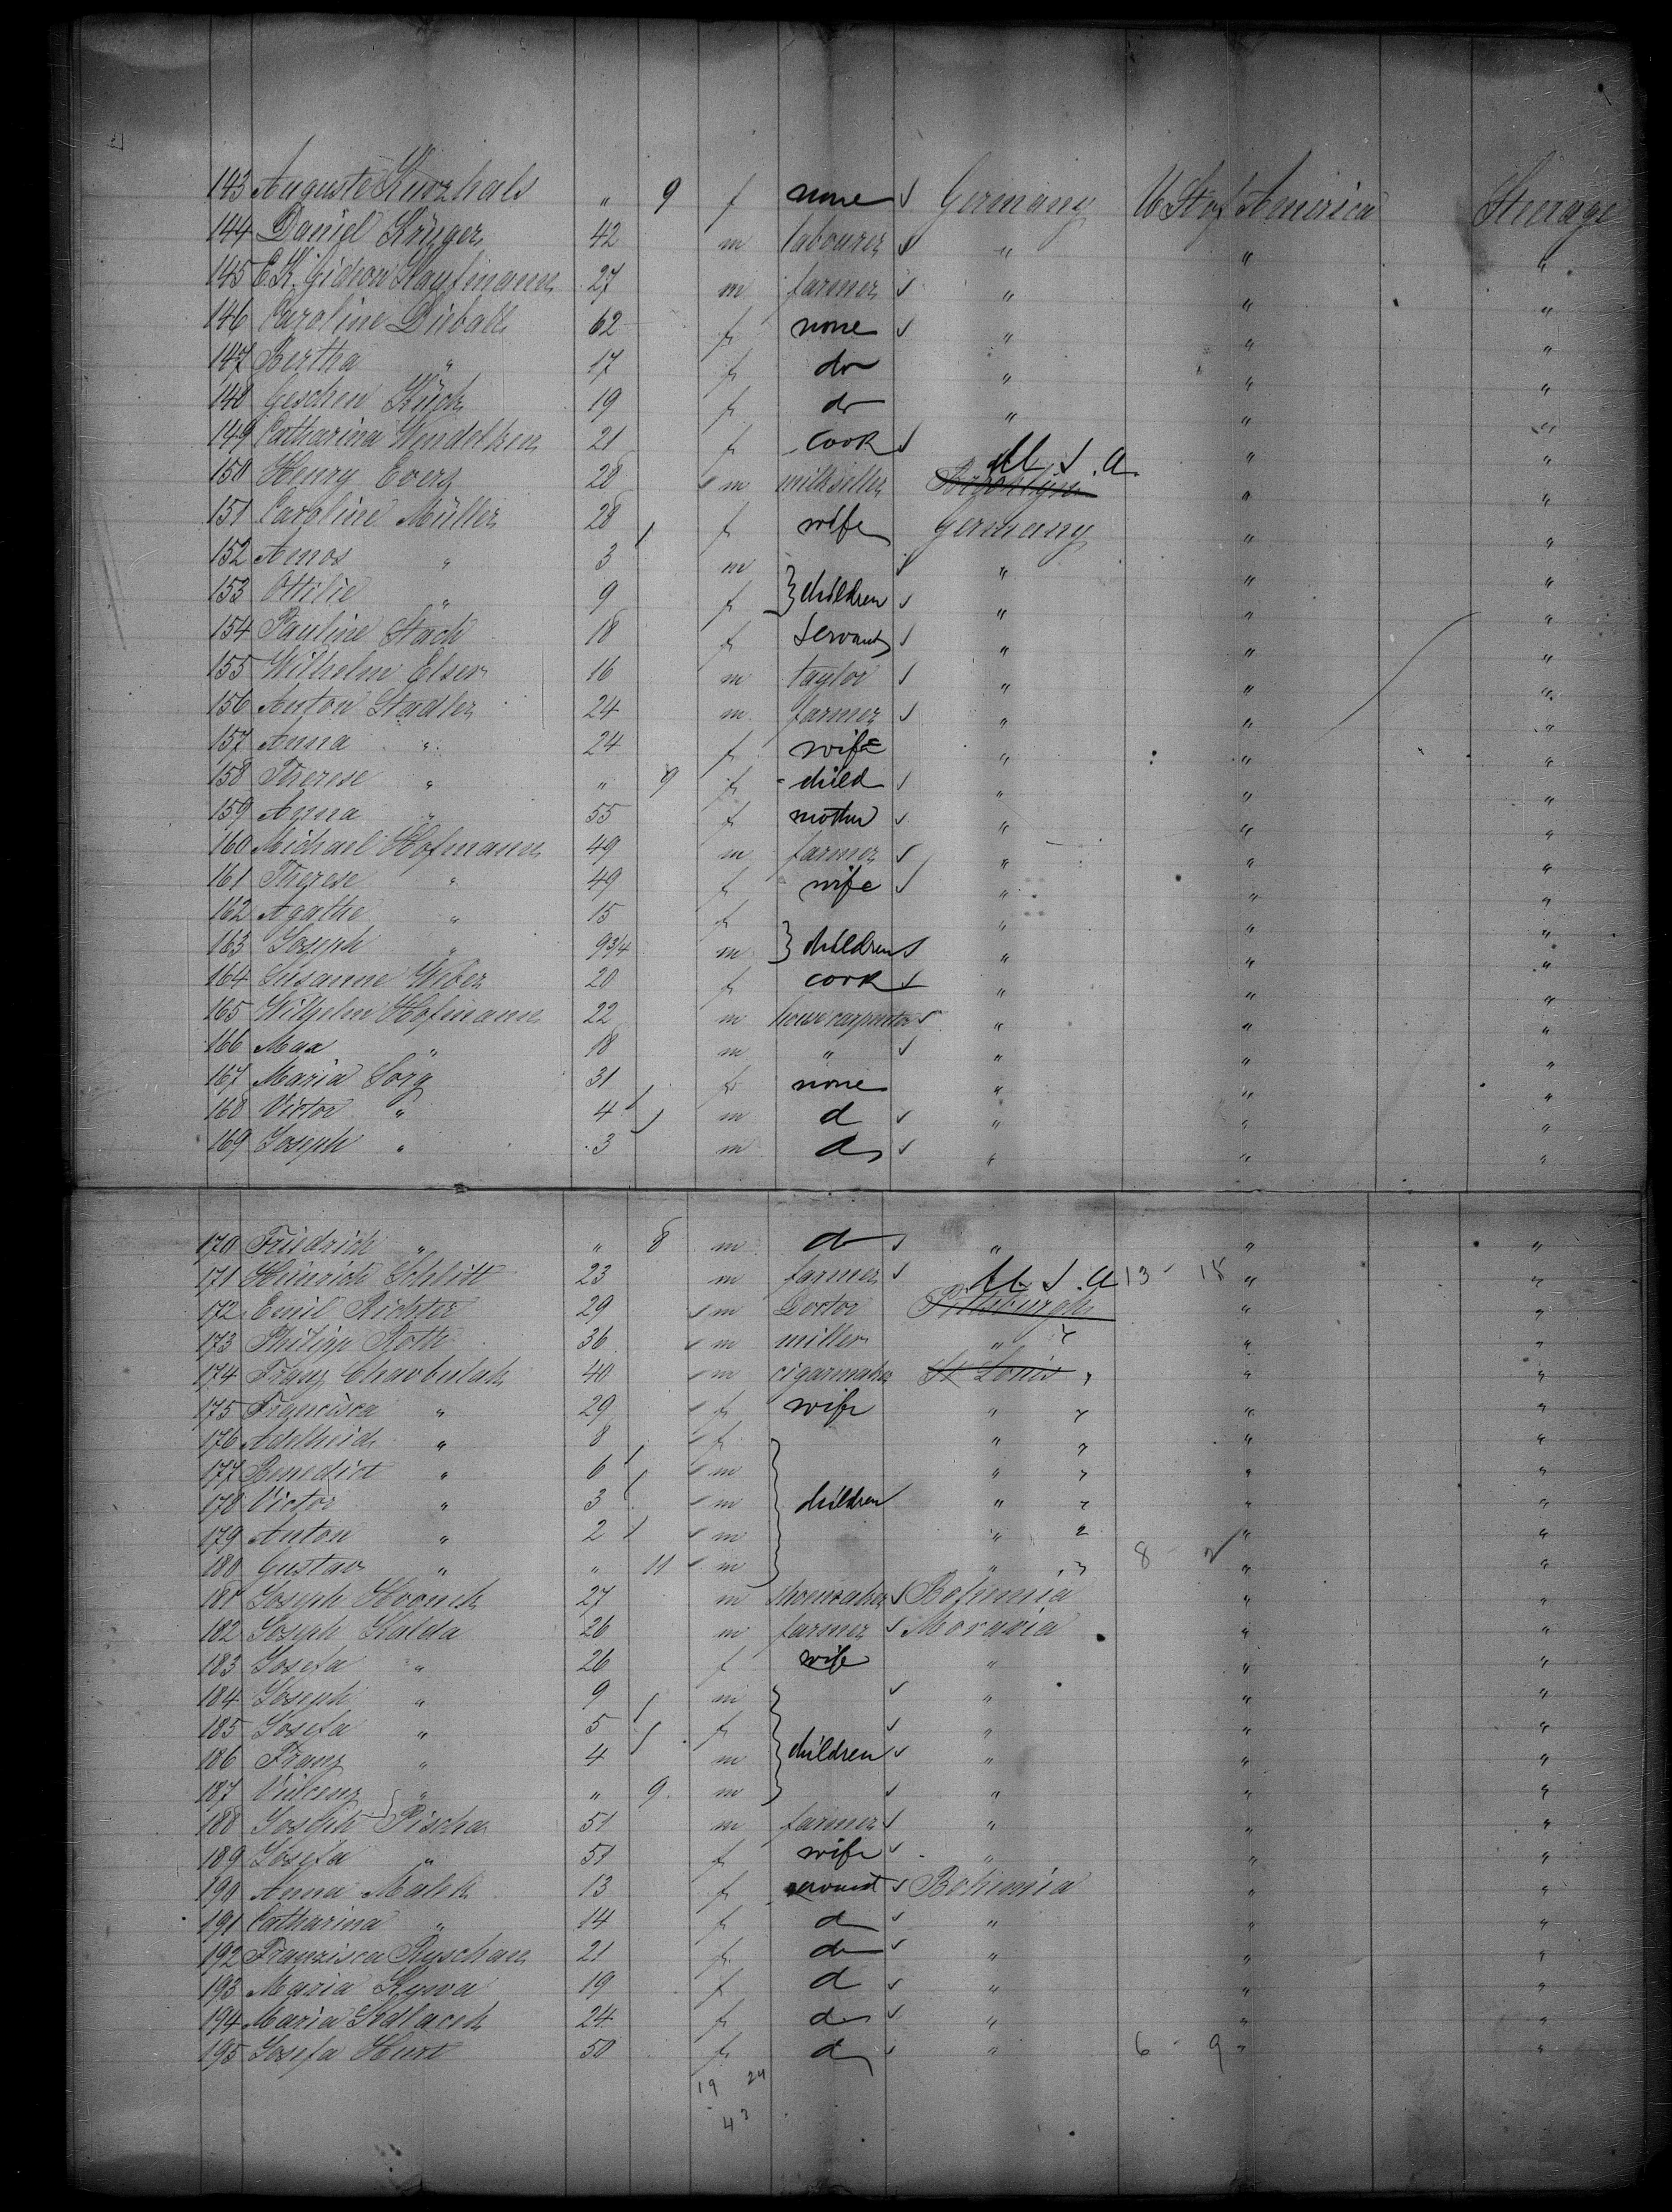 143 Auguste Kurzhals " 9 f none ✓ Germany U St of America Steerage
144 Daniel Krüger 42 m labourer ✓ " " "
145 E.K. Gideon Kaufmann 27 m farmer ✓ " " "
146 Caroline 62 f none ✓ " " "
147 Bertha " 17 f do " " "
148 Geschen Kück 19 f do " " "
149 Catharina Wendelken 21 f cook ✓ " "
150 Henry Evers 28 m milkseller Brooklyn U.S.A. " "
151 Caroline Müller 28 f wife Germany " "
152 Amos " 3 m ✓ " " "
153 Ottilie " 9 f } children ✓ " " "
154 Pauline Stach 18 f servant ✓ " " "
155 Wilhelm Elser 16 m taylor ✓ " " "
156 Anton Stadler 24 m farmer ✓ " " "
157 Anna " 24 f wife " " "
158 Therese " " 9 f child ✓ " " "
159 Anna " 55 f mother ✓ " " "
160 Michael Hofmann 49 m farmer ✓ " " "
161 Therese " 49 f wife ✓ " " "
162 Agathe " 15 f " " "
163 Joseph " 9 3/4 m } children ✓ " " "
164 Susanne Weber 20 f cook ✓ " " "
165 Wilhelm Hofmann 22 m house carpenter ✓ " " "
166 Max " 18 m " ✓ " " "
167 Maria Sorg 31 f none " " "
168 Victor " 4 m d ✓ " " "
169 Joseph " 3 m do ✓ " " "
170 Friedrich " " 8 m do ✓ " " "
171 Heinrich Schlitt 23 m farmer ✓ U.S.A 13 - 18 " "
172 Emil Richter 29 m Doctor Pittsburgh " "
173 Philipp Roth 36 m miller " " "
174 Franz 40 m cigarmaker St Louis " "
175 Francisca " 29 f wife " " "
176 Adelheid " 8 f " " "
177 Benedict " 6 m " " "
178 Victor " 3 m } children " " "
179 Anton " 2 m " " "
180 Gustav " " 11 m " 8 - " "
181 Joseph 27 m shoemaker ✓ Bohemia " "
182 Joseph Kalda 26 m farmer ✓ Moravia " "
183 Josefa " 26 f wife " " "
184 Joseph " 9 m ✓ " " "
185 Josefa " 5 f ✓ " " "
186 Franz " 4 m } children ✓ " " "
187 Vincenz " " 9 m ✓ " " "
188 Joseph Pischa 51 m farmer ✓ " " "
189 Josefa " 51 f wife ✓ " " "
190 Anna Malek 13 f servant ✓ Bohemia " "
191 Catharina " 14 f do ✓ " " "
192 Franzisca Ryschan 21 f do ✓ " " "
193 Maria Kywa 19 f d ✓ " " "
194 Maria Sedlacek 24 f do ✓ " " "
195 Josefa 50 f do ✓ " 6 - 9 " "
19 24
43